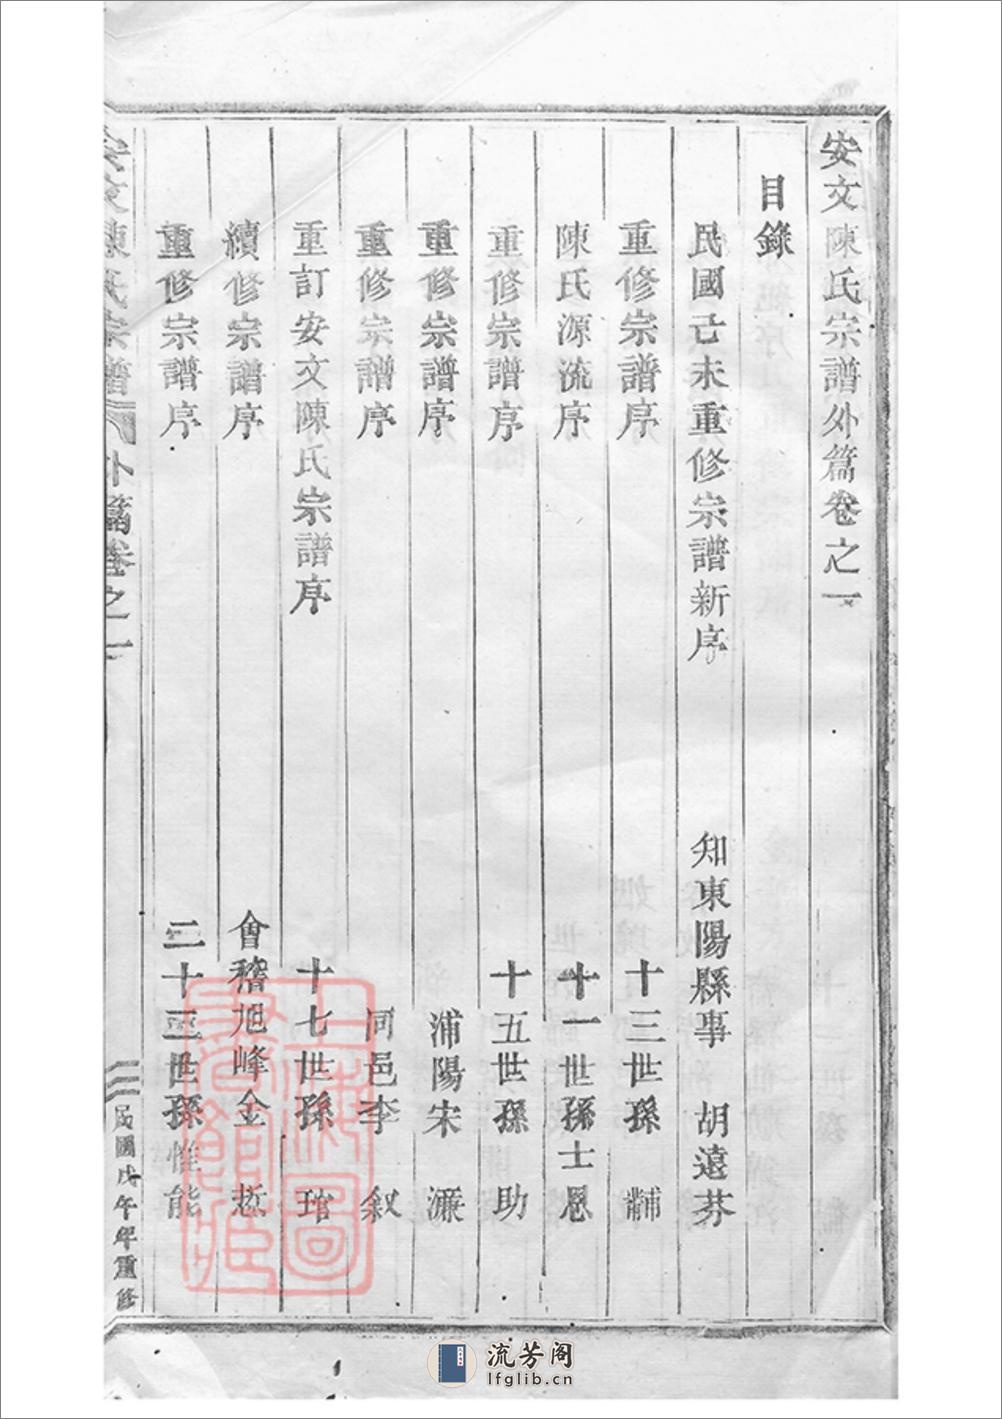 安文陳氏宗譜外篇卷之一
目錄
民國己未重修宗譜新序 知東陽縣事 胡遠芬
重修宗譜序 十三世孫 黼
陳氏源流序 十一世孫士恩
重修宗譜序 十五世孫 助
重修宗譜序 浦陽宋 濂
重修宗譜序 同邑李 叙
重訂安文陳氏宗譜序 十七世孫 琯
續修宗譜序 會稽旭峰金 悊
重修宗譜序 二十三世孫惟能
安文陳氏宗譜 外篇卷之一 民國戊午年重修
上海圖書館藏
流芳阁
lfglib.cn